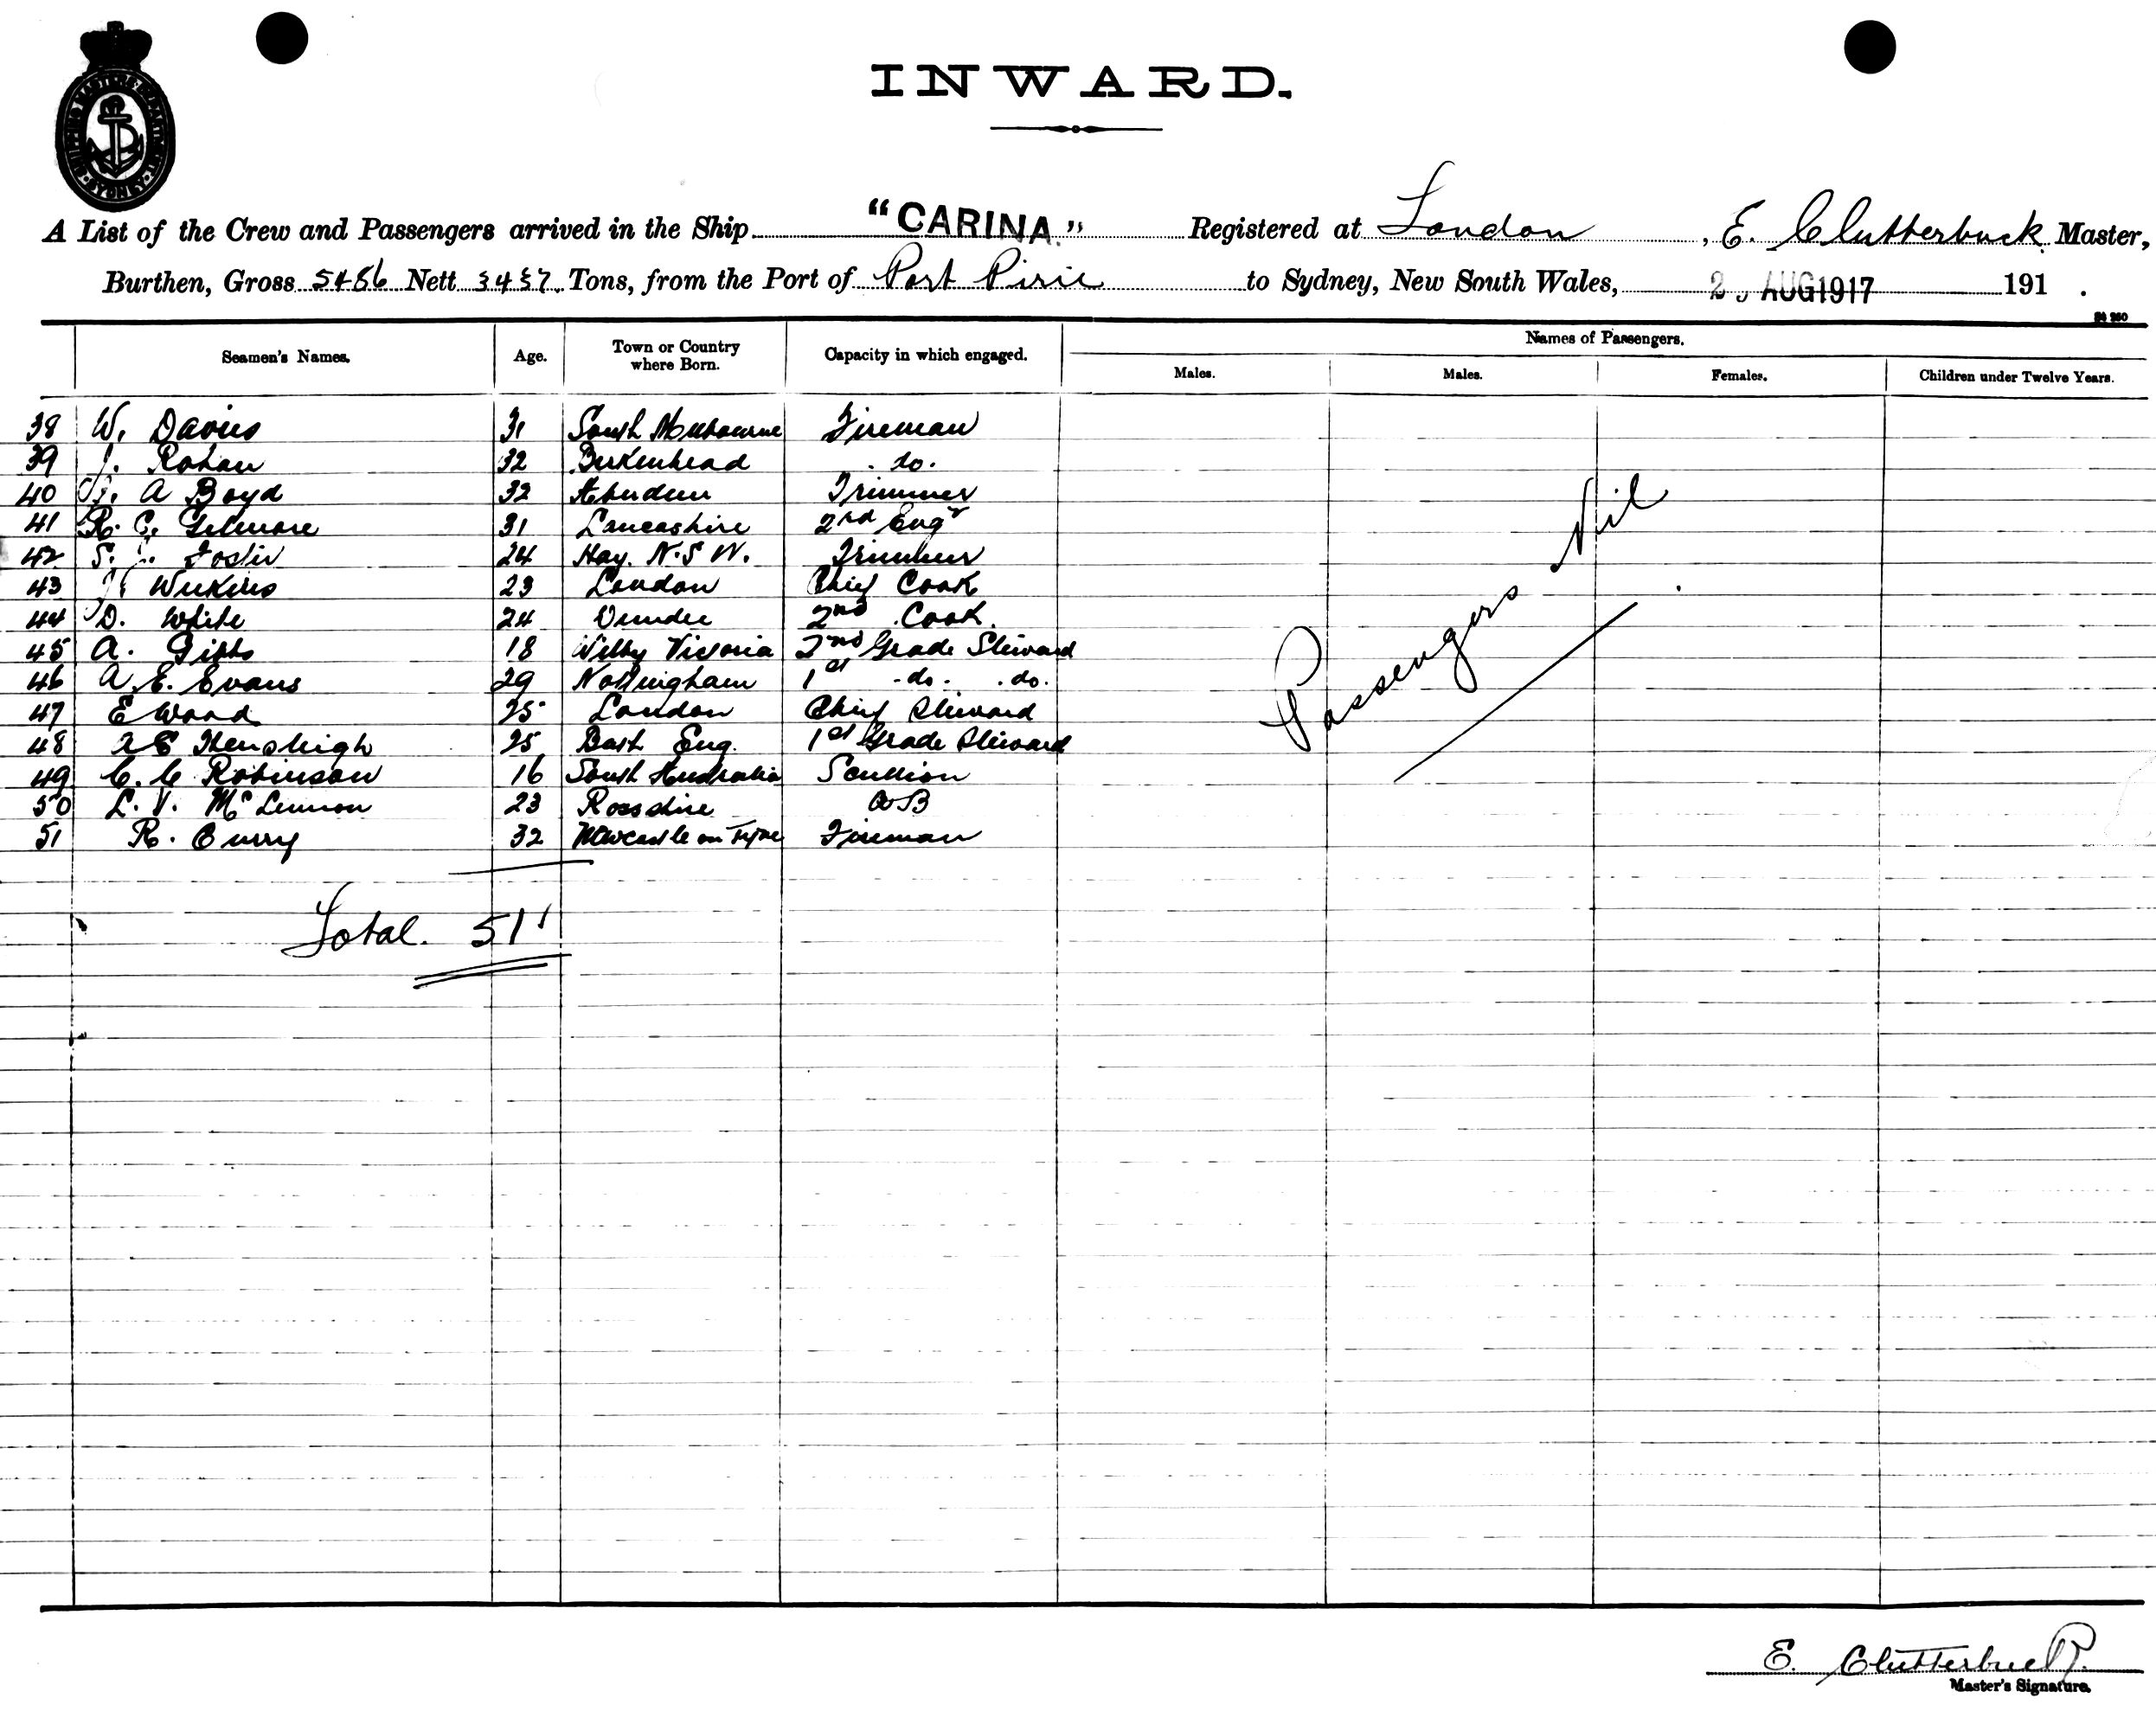 SHIPPING MASTER'S DEPARTMENT SYDNEY
INWARD.
A List of the Crew and Passengers arrived in the Ship "CARINA." Registered at London, E. Clutterbuck Master,
Burthen, Gross 5456 Nett 3437 Tons, from the Port of Port Pirie to Sydney, New South Wales, AUG 1917 191 .
Seamen's Names. Age. Town or Country where Born. Capacity in which engaged. Names of Passengers.
Males. Males. Females. Children under Twelve Years.
38 W. Davies 31 South Melbourne Fireman
39 J. Rohan 32 Birkenhead do.
40 A Boyd 32 Aberdeen Trimmer
41 R. C. Gilmore 31 Lancashire 2nd Engr
42 S. Foster 24 Hay. N.S.W. Trimmer
43 23 London Chief Cook
44 D. White 24 Dundee 2nd Cook.
45 A. Gibbs 18 Victoria 2nd Grade Steward
46 A. E. Evans 29 Nottingham 1st do. do.
47 E Wood 25 London Chief Steward
48 A E Hensleigh 25 Bath Eng. 1st Grade Steward
49 C. C Robinson 16 South Australia Scullion
50 L. V. McLennon 23 Rossshire AB
51 R. Curry 32 Newcastle on Tyne Fireman
Passengers Nil
Total. 51
E. Clutterbuck.
Master's Signature.